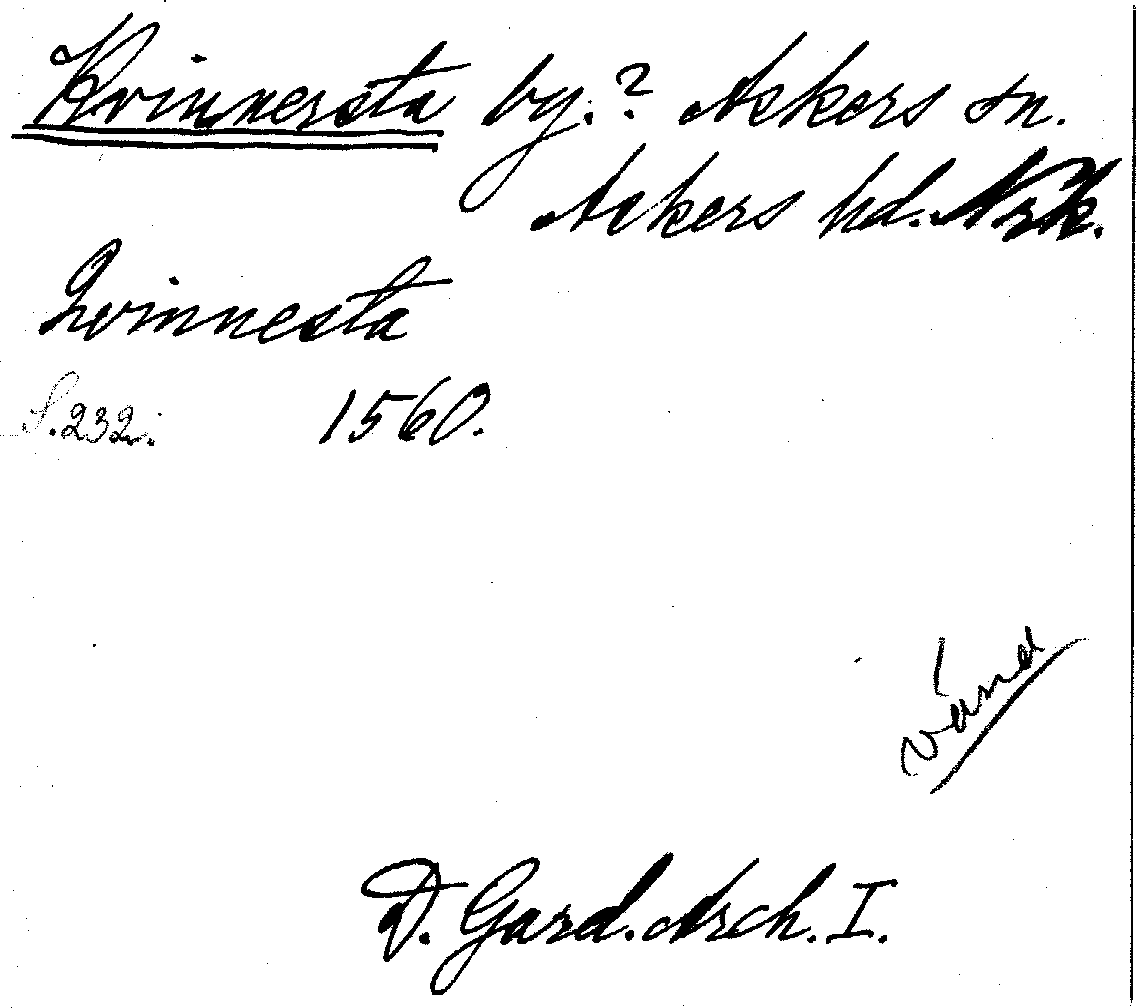 Kvinnersta by.? Askers sn.
Askers hd. Nrk.
Qvinnesta
S. 232. 1560.
Vänd
D. Gard. Arch. I.